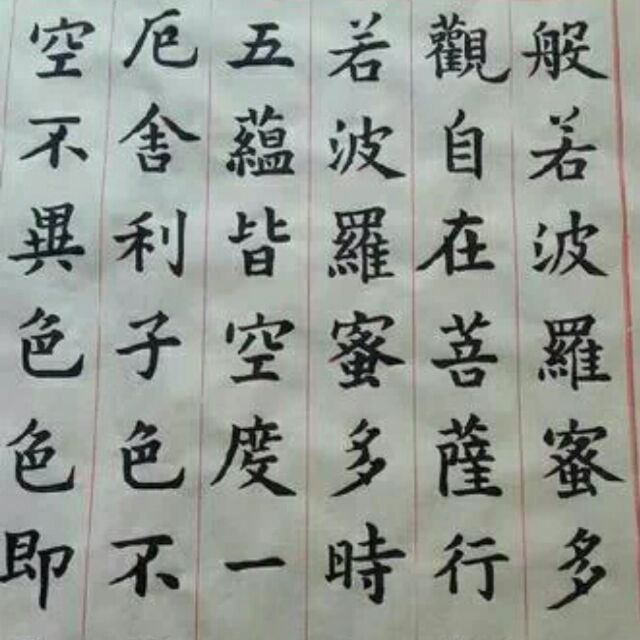 般若波羅蜜多
觀自在菩薩行
若波羅蜜多時
五蘊皆空度一
厄舍利子色不
空不異色色即